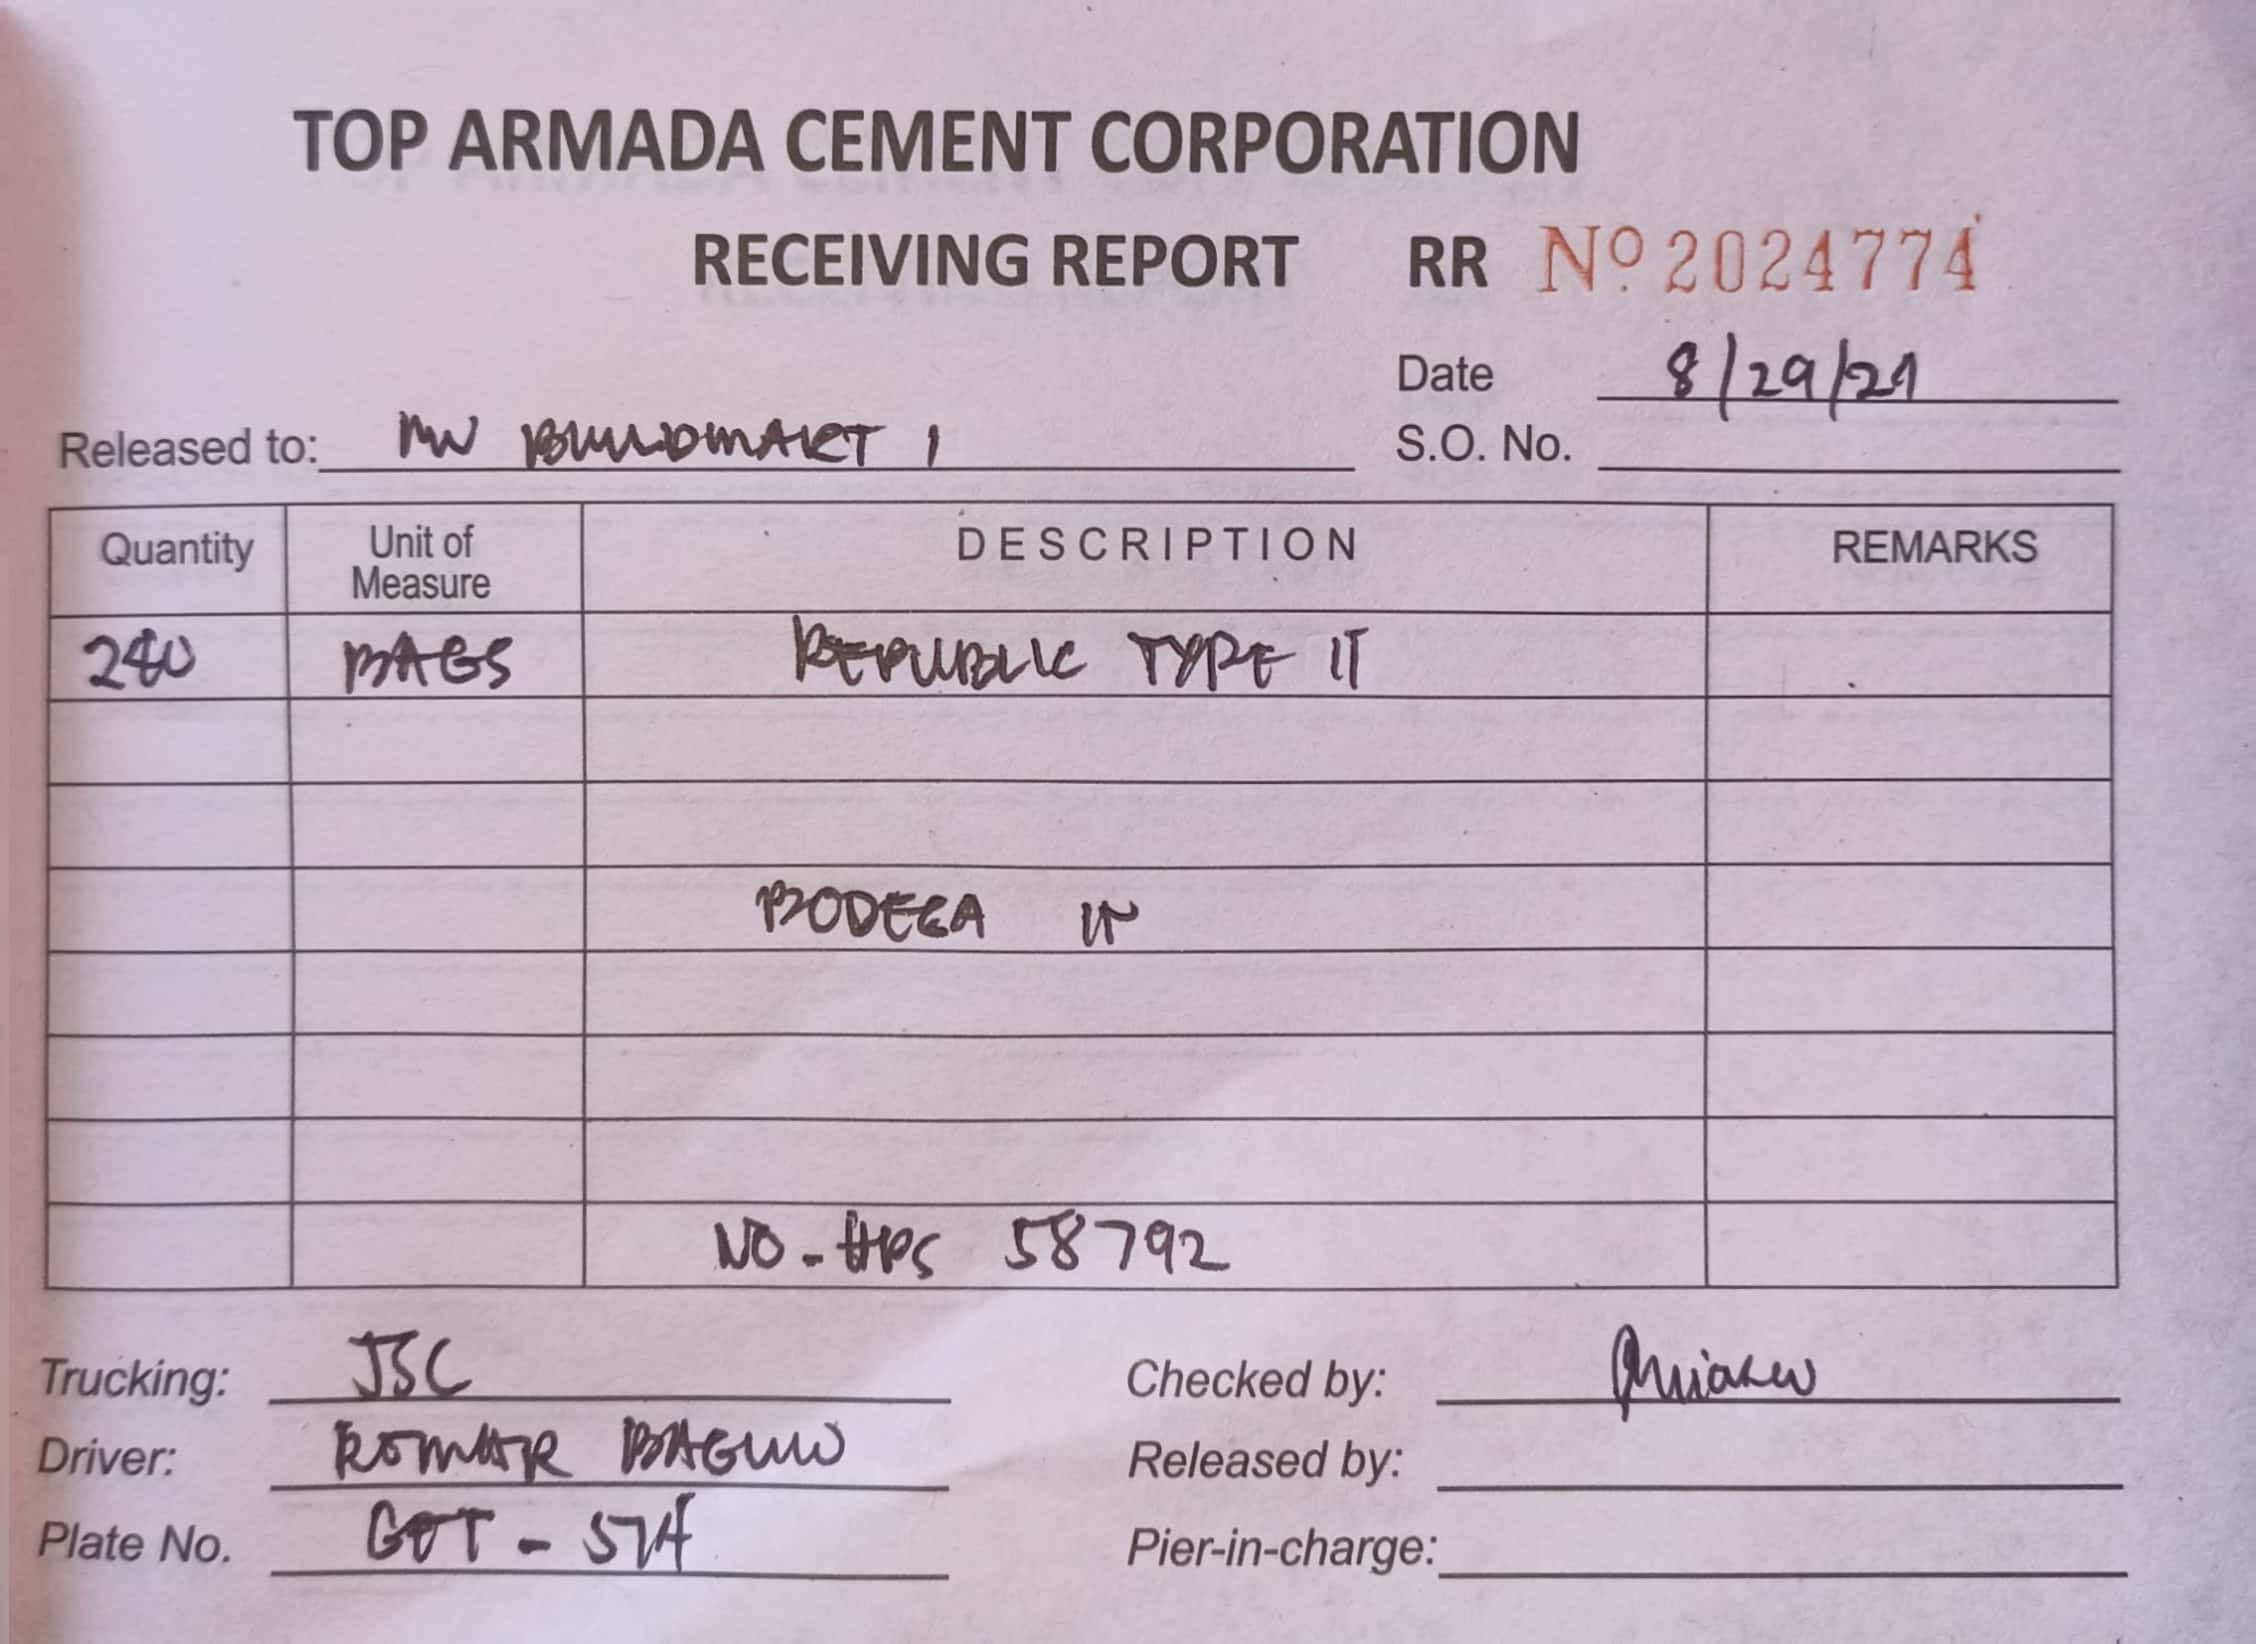 TOP ARMADA CEMENT CORPORATION
RECEIVING REPORT RR Nº 2024774
Date 8/29/21
Released to: MW BUILDMART 1 S.O. No.
Quantity Unit of Measure DESCRIPTION REMARKS
240 BAGS REPUBLIC TYPE 1T
BODEGA IN
NO. HPS 58792
Trucking: JSC Checked by:
Driver: ROMAR BAGUIO Released by:
Plate No. GOT - 574 Pier-in-charge: